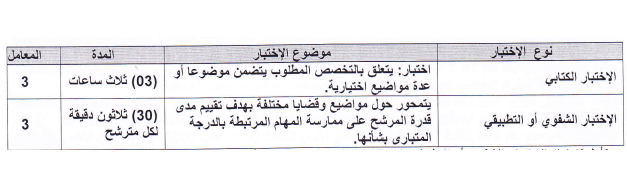 نوع الإختبار موضوع الإختبار المدة المعامل
الإختبار الكتابي اختبار: يتعلق بالتخصص المطلوب يتضمن موضوعا أو (03) ثلاث ساعات 3
عدة مواضيع اختيارية.
يتمحور حول مواضيع وقضايا مختلفة بهدف تقييم مدى (30) ثلاثون دقيقة
الإختبار الشفوي أو التطبيقي قدرة المرشح على ممارسة المهام المرتبطة بالدرجة لكل مترشح 3
المتبارى بشأنها.